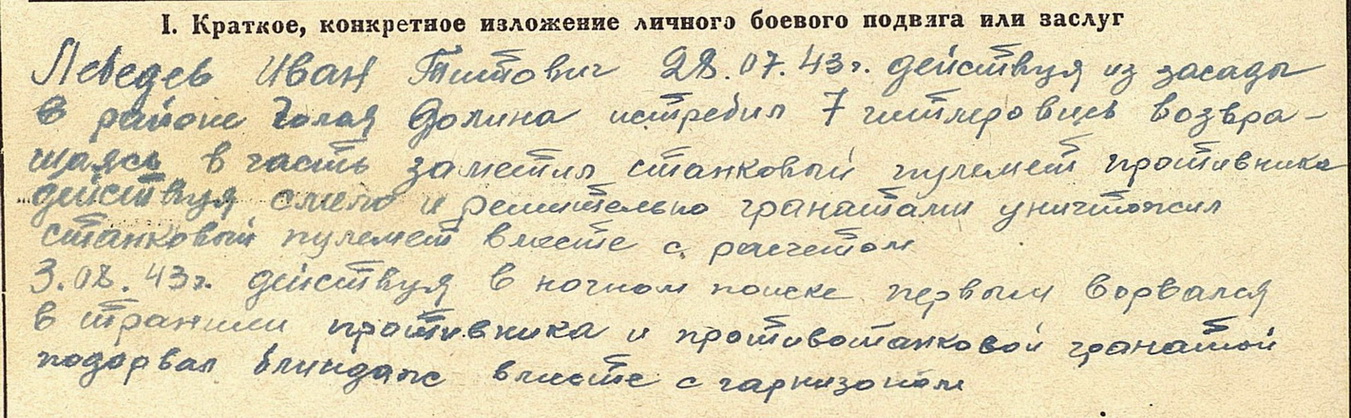 I. Краткое, конкретное изложение личного боевого подвига или заслуг
Лебедев Иван Титович 28.07.43г. действуя из засады
в районе Голая Долина истребил 7 гитлеровцев возвра-
щаясь в часть заметил станковый пулемет противника
действуя смело и решительно гранатами уничтожил
станковый пулемет вместе с расчетом
3.08.43г. действуя в ночном поиске первым ворвался
в траншеи противника и противотанковой гранатой
подорвал блиндаж вместе с гарнизоном